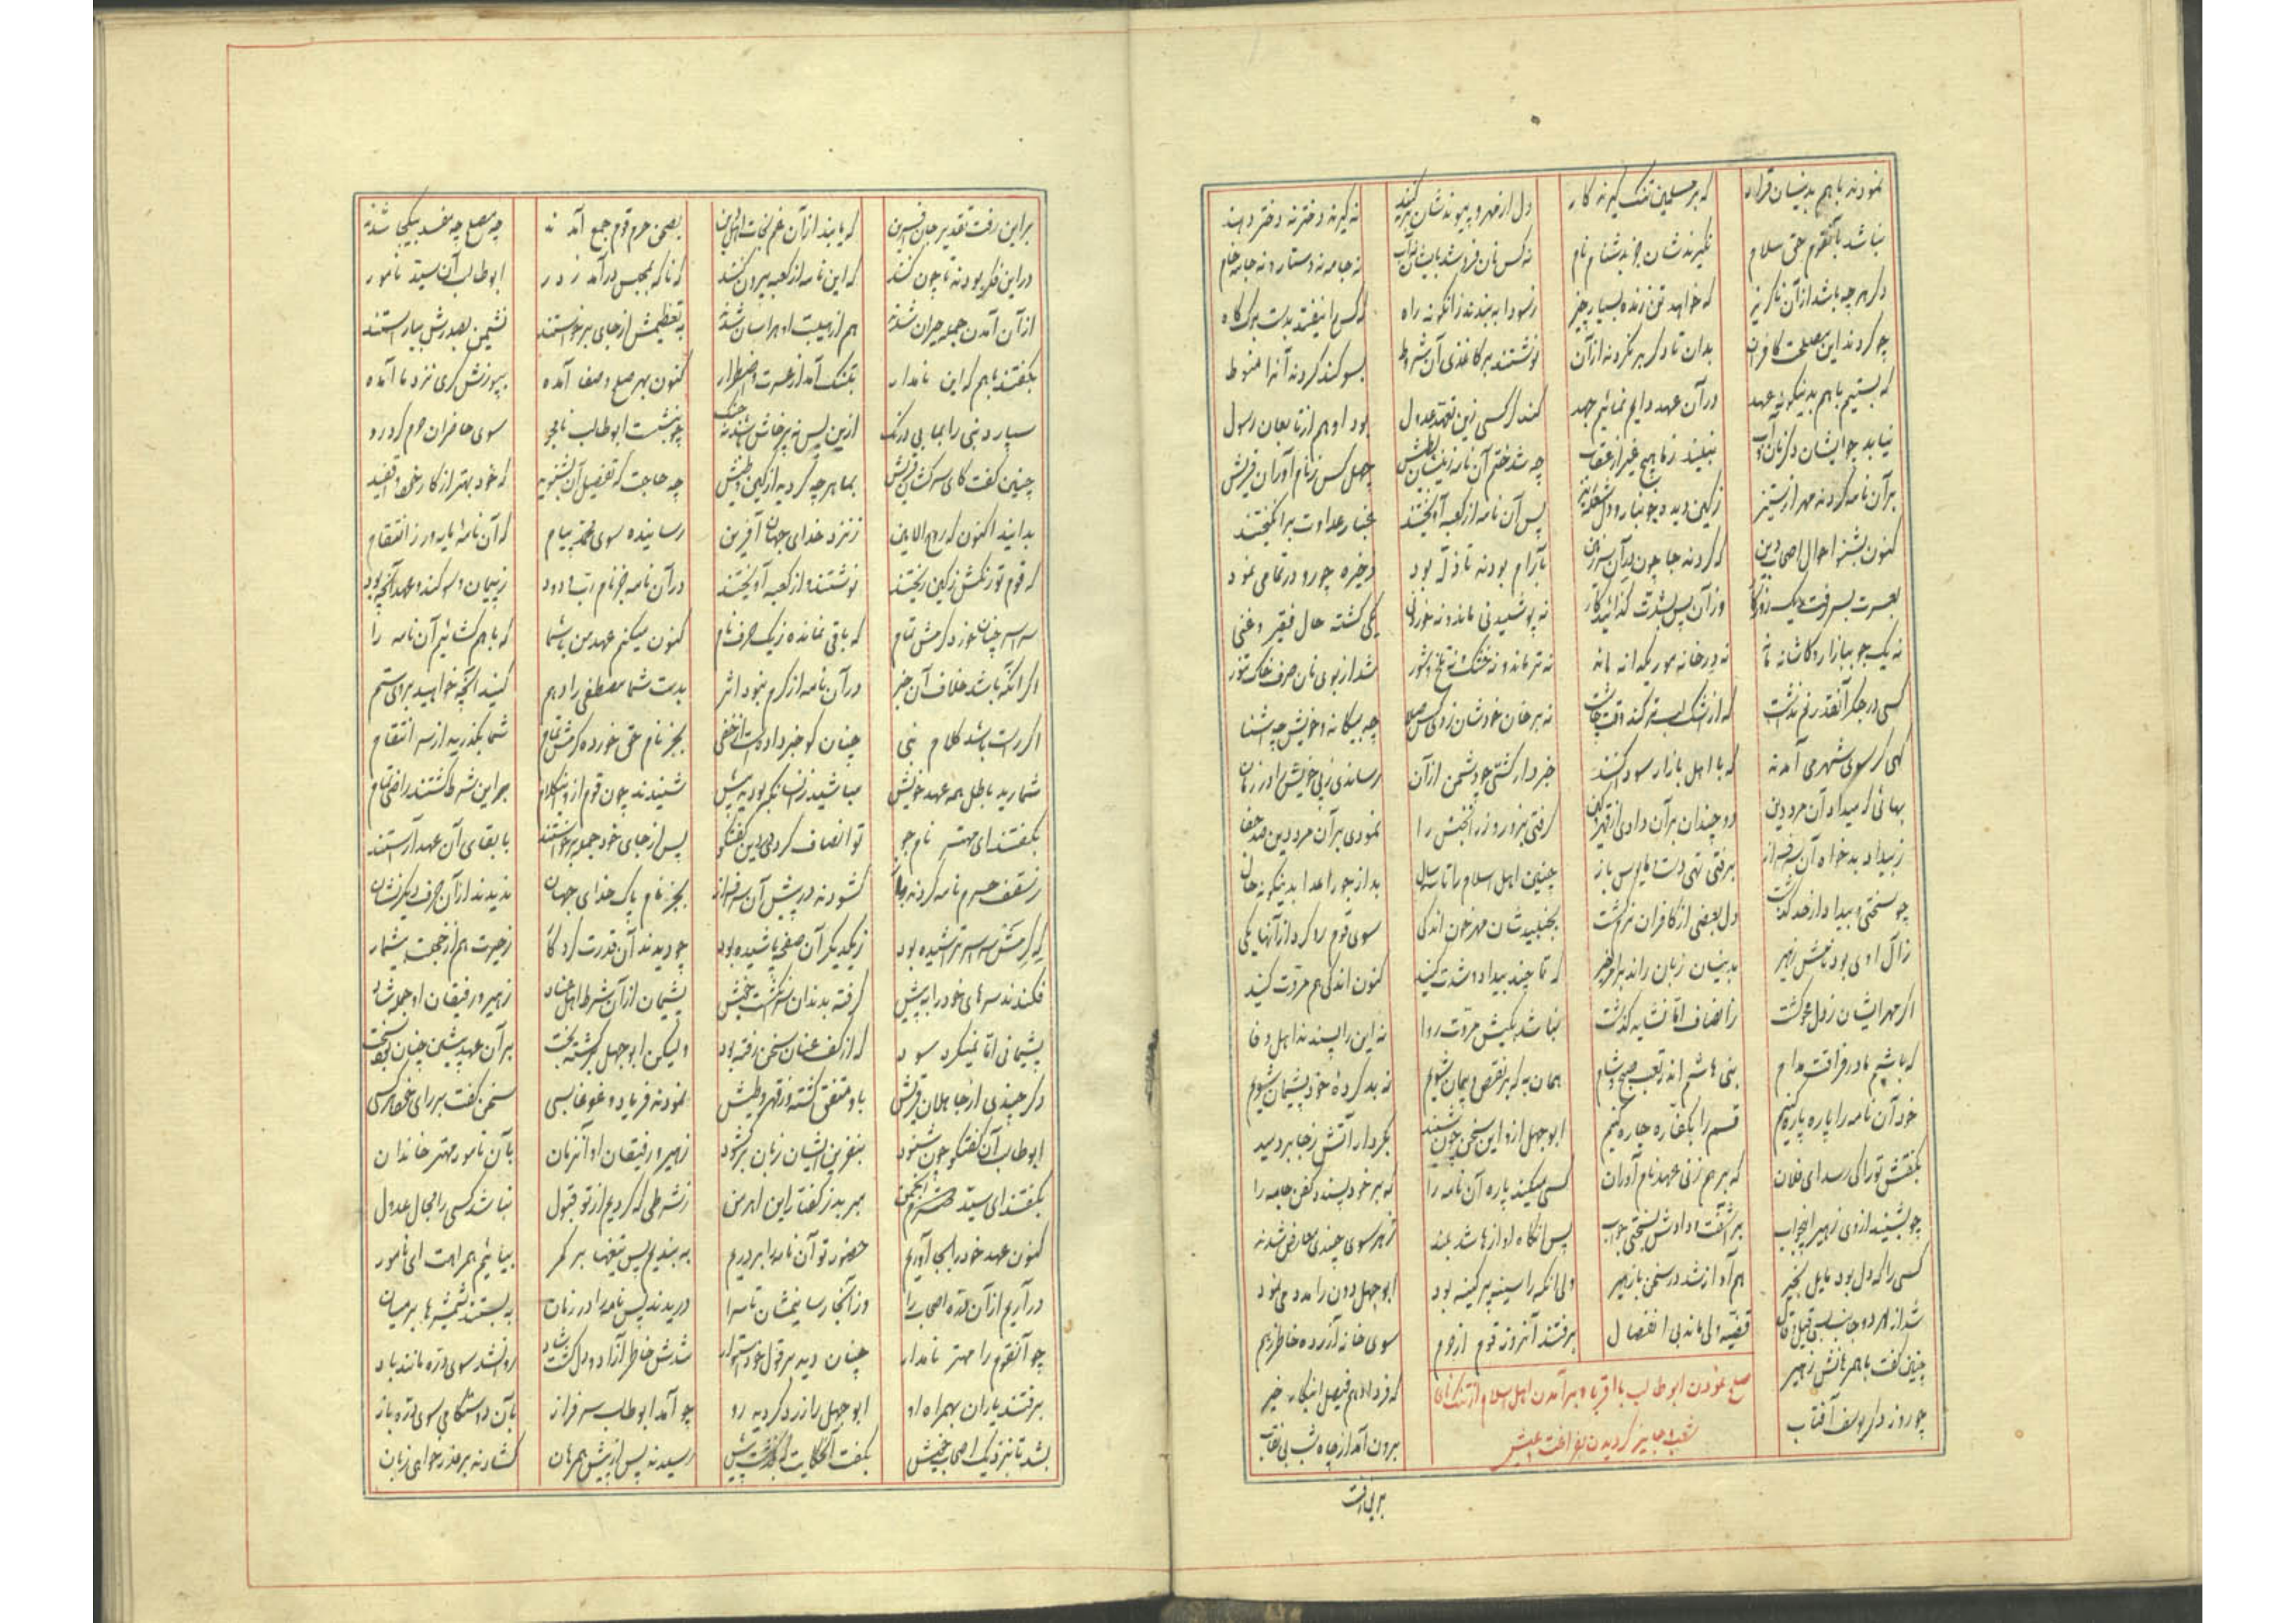 نمودند باهم بدینسان قرار که بر مسلمین تنگ گیرند کار دل از مهر و پیوندشان برکنند نه گیرند دختر نه دختر دهند
نباشد بآنقوم حق سلام نگیرندشان جز بدشنام نام نه کس نان فروشد بایشان نه آب نه جامه نه دستار و نه جامه خام
دگر هرچه باشد از آن ناگزیر که خواهد تن زنده بسیار چیز ز سودا به بندند زانگونه راه که کس را نیفتد بدست برگ کاه
چو کردند این مصلحت کافران بدان تا دگر برنگردند از آن نوشتند بر کاغذی آن شروط بسوگند کردند آنرا منوط
که بستیم باهم بدینگونه عهد در آن عهد دایم نمائیم جهد کند گر کسی زین تعهد عدول بود او هم از تابعان رسول
نیابد چو ایشان دگر زان نبیند ز ما هیچ غیر از عقاب چه شد ختم آن نامه زینسان چهل کس ز نام آوران قریش
بر آن نامه کردند مهر از ستیز ز کین دیده خونبار و دل شعله‌ریز پس آن نامه از کعبه آویختند غبار عداوت برانگیختند
کنون بشنو احوال اصحاب دین که کردند جا چون در آن سرزمین بآرام بودند تا ذله بود ذخیره چو رو در تمامی نمود
بعسرت بسر رفت یک روزگار وز آن پس بشدت کذائید کار نه پوشیدنی ماند و نه خوردنی یکی گشته حال فقیر و غنی
نه یک جو ببازار و کاشانه ماند نه در خانه مور یکدانه ماند نه تر ماند و نه خشک و نه تلخ و شور شد از بوی نان صرف خاک تنور
کسی در جگر آنقدر نم نداشت که از اشک بستر کند وقت چاشت نه بر خان خودشان زدی کس صلا چه بیگانه و خویش چه آشنا
گهی گر سوی شهر می آمدند که با اهل بازار سودا کنند خبردار گشتی چو دشمن از آن رساندی ز پی خویش را در زمان
بهائی که میداد آن مرد دین دو چندان بر آن دادی از قهر و کین گرفتی بزور و زر آن جنس را نمودی بر آن مرد دین صد جفا
ز بیداد بدخواه آن سرفراز برفتی تهی دست و مایوس باز چنین اهل اسلام را تا سه سال بد از جور اعدا بدینگونه حال
چو سختی و بیداد از حد گذشت دل بعضی از کافران نرم گشت بجنبیدشان مهر خون اندکی سوی قوم رو کرد از آنها یکی
ز آل اوی بود نامش زهیر بدینسان زبان راند بر امر خیر که تا چند بیداد و شدت کنید کنون اندکی هم مروت کنید
اگر مهر ایشان ز دل محو گشت ز انصاف اما نشاید گذشت نباشد بکیش مروت روا نه این را پسندند اهل وفا
که باشیم ما در فراقت مدام بنی هاشم اندر تعب صبح و شام همان به که بر نقض پیمان شویم نه بد کردهٔ خود پشیمان شویم
خود آن نامه را پاره پاره کنیم قسم را بکفاره چاره کنیم ابوجهل ازو این سخن چون شنید بکردار آتش ز جا بر دمید
بگفتش تو را کی رسد ای فلان که بر هم زنی عهد نام آوران کسی میکند پاره آن نامه را که بر خود پسندد کفن جامه را
چو بشنید از وی زهیر این جواب برآشفت و دادش بسختی جواب پس آنگاه آوازها شد بلند ز هر سوی چندی معارض شدند
کسی را که دل بود مایل بخیر هم آواز شد در سخن با زهیر ولی آنکه را سینه پر کینه بود ابوجهل دون را مدد می نمود
شد از هر دو جانب بسی قیل و قال قضیه ولی ماند بی انفصال برفتند آنروز قوم از حرم سوی خانه آزرده خاطر ز هم
چنین گفت باهمرهانش زهیر که فردا دهم فیصل اینکار خیر
صلح نمودن ابو طالب با اقربا و برآمدن اهل اسلام از تنگنای
شعب و جایز گردیدن بفراغت عیش
چو روز دگر یوسف آفتاب برون آمد از چاه شب بی نقاب
براین رفت
براین رفت تقدیر جان آفرین که یابند از آن غم نجات اهل دین بصحن حرم قوم جمع آمدند چه مصلح چه مفسد بیکجا شدند
در این فکر بودند تا چون کنند که این نامه از کعبه بیرون کنند که ناگه بمجلس درآمد ز در ابوطالب آن سید نامور
از آن آمدن جمله حیران شدند هم از هیبت او هراسان شدند بتعظیمش از جای برخواستند نشیمن بصدرش بیاراستند
بگفتند باهم که این نامدار بتنگ آمد از عسرت و اضطرار کنون بهر صلح و صفا آمده بپوزش گری نزد ما آمده
سپارد نبی را بما بی درنگ ازین پس نه پرخاش شد نه جنگ چو بنشست ابوطالب نامجو سوی حاضران حرم کرد رو
چنین گفت کای سرکشان قریش بما هرچه کردید از کین و طیش چه حاجت که تفصیل آن بشنوید که خود بهتر از کار خود واقفید
بدانید اکنون که روح الامین ز نزد خدای جهان آفرین رسانیده سوی محمد پیام که آن نامهٔ مایه‌ور ز انتقام
که قوم تو رنگش ز کین ریختند نوشتند و از کعبه آویختند در آن نامه جز نام رب ودود ز پیمان و سوگند و عهد آنچه بود
سراسر چنان خورد کرمش تمام که باقی نمانده ز یک حرف نام کنون میکنم عهد من باشما که باهم گشائیم آن نامه را
اگر آنکه باشد خلاف آن خبر در آن نامه از کرم نبود اثر بدست شما مصطفی را دهم کنید آنچه خواهید بروی ستم
اگر راست باشد کلام نبی چنان کو خبر داده است از خفی بجز نام حق خورده کرمش تمام شما بگذرید از سر انتقام
شمارید باطل همه عهد خویش مباشید زانسان که بودید پیش شنیدند چون قوم ازو این کلام بر این شرط گشتند راضی تمام
بگفتند ای مهتر نامجو تو انصاف کردی درین گفتگو پس از جای خود جمله برخواستند بابقای آن عهد آراستند
ز سقف حرم نامه کردند باز گشودند در پیش آن سرفراز بجز نام پاک خدای جهان ندیدند از آن حرف دیگر نشان
که کرمش سراسر تراشیده بود ز یکدیگر آن صفحه پاشیده بود چو دیدند آن قدرت کردگار ز حیرت هم از خجلت بیشمار
فکندند سرهای خود را به پیش گرفته بدندان سرانگشت خویش پشیمان از آن شرط اهل عناد زهیر و رفیقان او جمله شاد
پشیمانی اما نمیکرد سود که از کف عنان سخن رفته بود ولیکن ابوجهل برگشته بخت بر آن عهد پیشین چنان بود سخت
دگر چندی از جاهلان قریش باو متفق گشته در قهر و طیش نمودند فریاد و غوغا بسی سخن گفت بر رای خود هر کسی
ابوطالب آن گفتگو چون شنود بنفرین ایشان زبان برگشود زهیر و رفیقان او آنزمان بآن نامور مهتر خاندان
بگفتند ای سید محترم انجمن مبر بد ز گفتار این اهرمن ز شرطی که کردیم از تو قبول نباشد کسی را مجال عدول
کنون عهد خود را بجا آوریم حضور تو آن نامه را بردریم به بندیم پس تیغها بر کمر بیائیم همراهت ای نامور
درآریم از آن دره اصحاب را وز آنجا رسانیمشان تا سرا دریدند پس نامه را در زمان به بستند شمشیرها بر میان
چو آنقوم را مهتر نامدار چنان دید بر قول خود استوار شدش خاطر آزاد و دل گشت شاد روانشد سوی دره مانند باد
برفتند یاران بهمراه او ابوجهل را زرد گردید رو چو آمد ابوطالب سرفراز بآن دوستکامی سوی دره باز
بشد تا بنزدیک اصحاب خویش بگفت آن حکایت که بگذشت پیش رسیدند پس از پیش همرهان گشادند بر عذرخواهی زبان